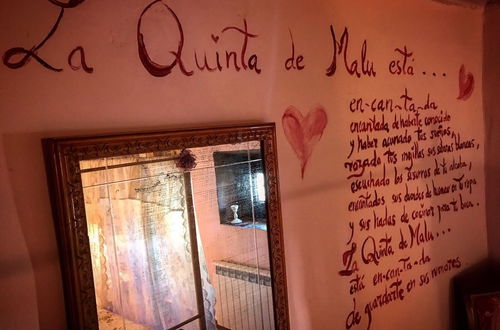 La Quinta de Malu está...
en-can-ta-da
encantada de haberte conocido
y haber acunado tus sueños,
rozado tus mejillas sus sábanas blancas,
escuchado los susurros de tu alcoba,
encantados sus duendes de humear en tu ropa
y sus hadas de cocinar para tu bien...
La Quinta de Malu...
está en-can-ta-da
de guardarte en sus rumores.